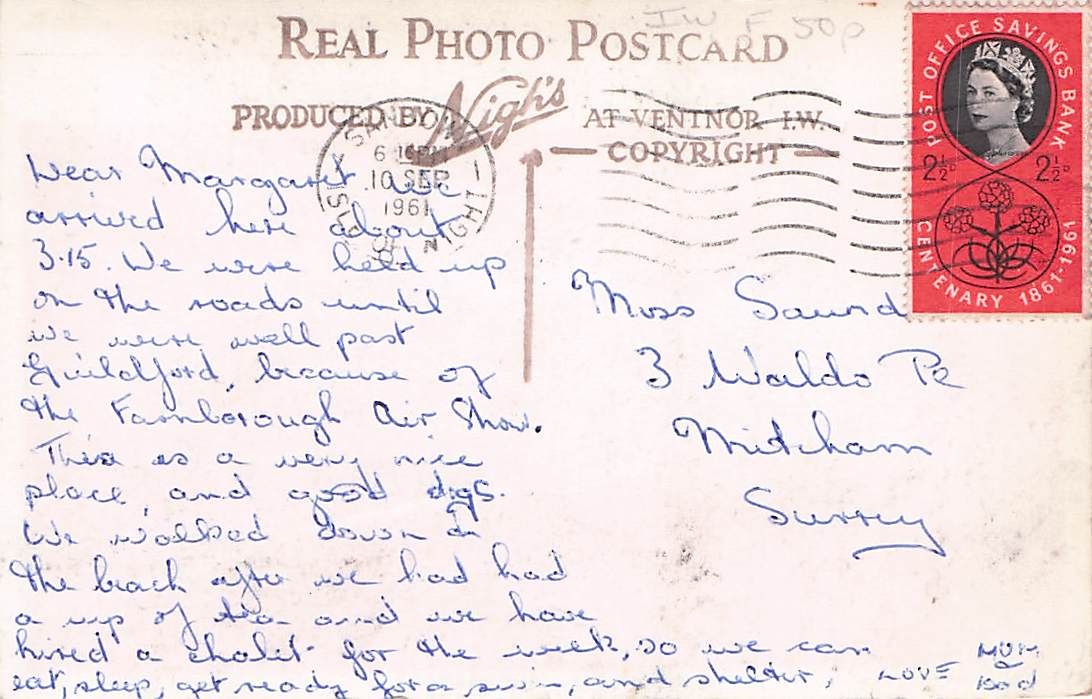 IW F 50p
REAL PHOTO POSTCARD
PRODUCED BY Nigh's AT VENTNOR I.W.
COPYRIGHT
POST OFFICE SAVINGS BANK
2½D 2½D
CENTENARY 1861-1961
6 15PM
10 SEP
1961
ISLE OF WIGHT
Dear Margaret We
arrived here about
3.15. We were held up
on the roads until
we were well past
Guildford, because of
the Farnborough Air Show.
This is a very nice
place, and good digs.
We walked down to
the beach after we had had
a cup of tea and we have
hired a chalet for the week, so we can
eat, sleep, get ready for a swim, and shelter,
LOVE MUM
&
Dad
Miss Saund
3 Waldo Pl
Mitcham
Surrey